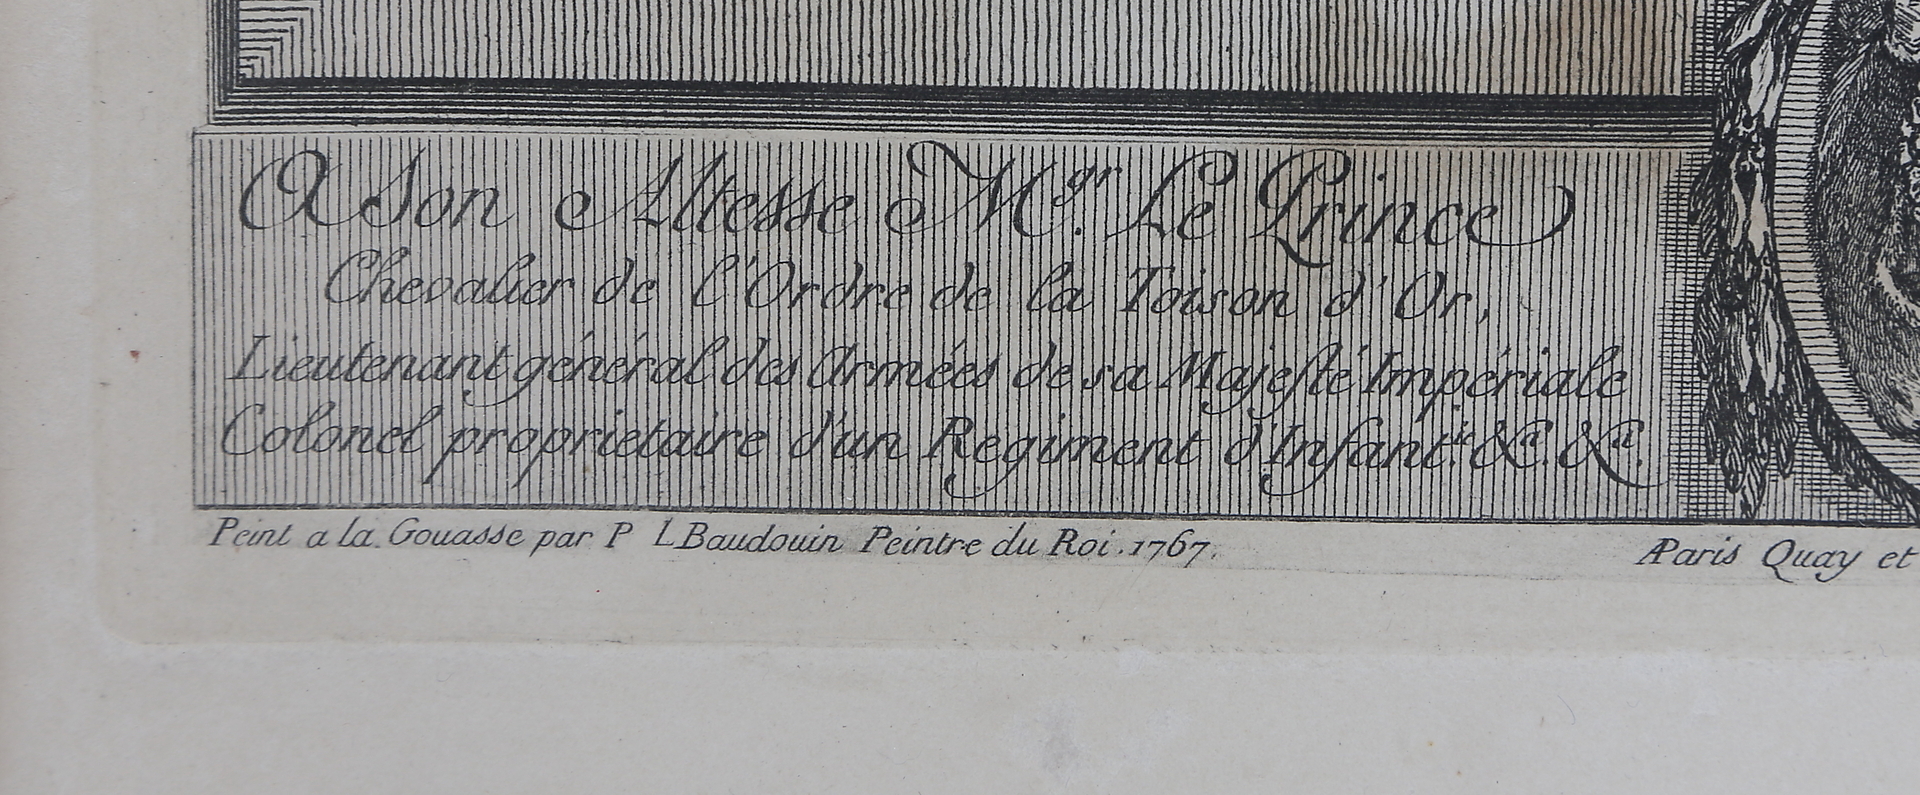 A Son Altesse M.gr Le Prince
Chevalier de l'Ordre de la Toison d'Or,
Lieutenant général des Armées de sa Majesté Impériale
Colonel proprietaire d'un Regiment d'Infant.ie &c.a &c.a
Peint a la Gouasse par P L Baudouin Peintre du Roi. 1767.
AParis Quay et